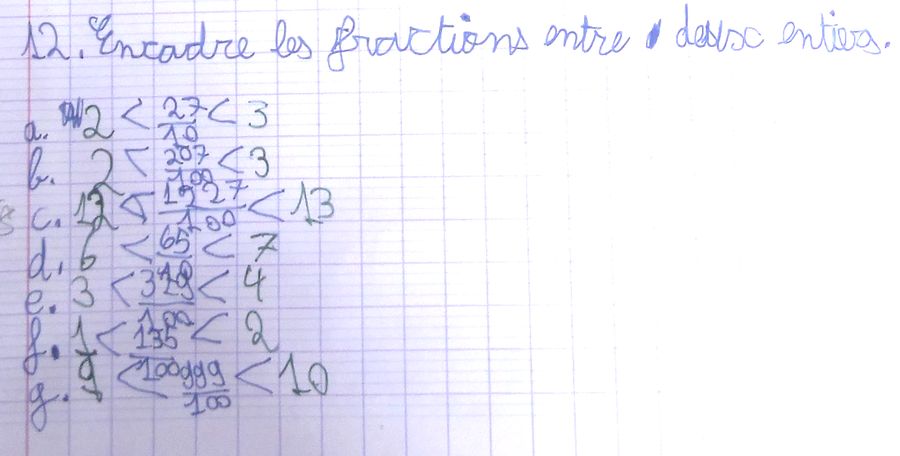 12. Encadre les fractions entre deux entiers.
a. 2 < 27/10 < 3
b. 2 < 207/100 < 3
c. 12 < 1227/100 < 13
d. 6 < 65/10 < 7
e. 3 < 329/100 < 4
f. 1 < 135/100 < 2
g. 9 < 999/100 < 10